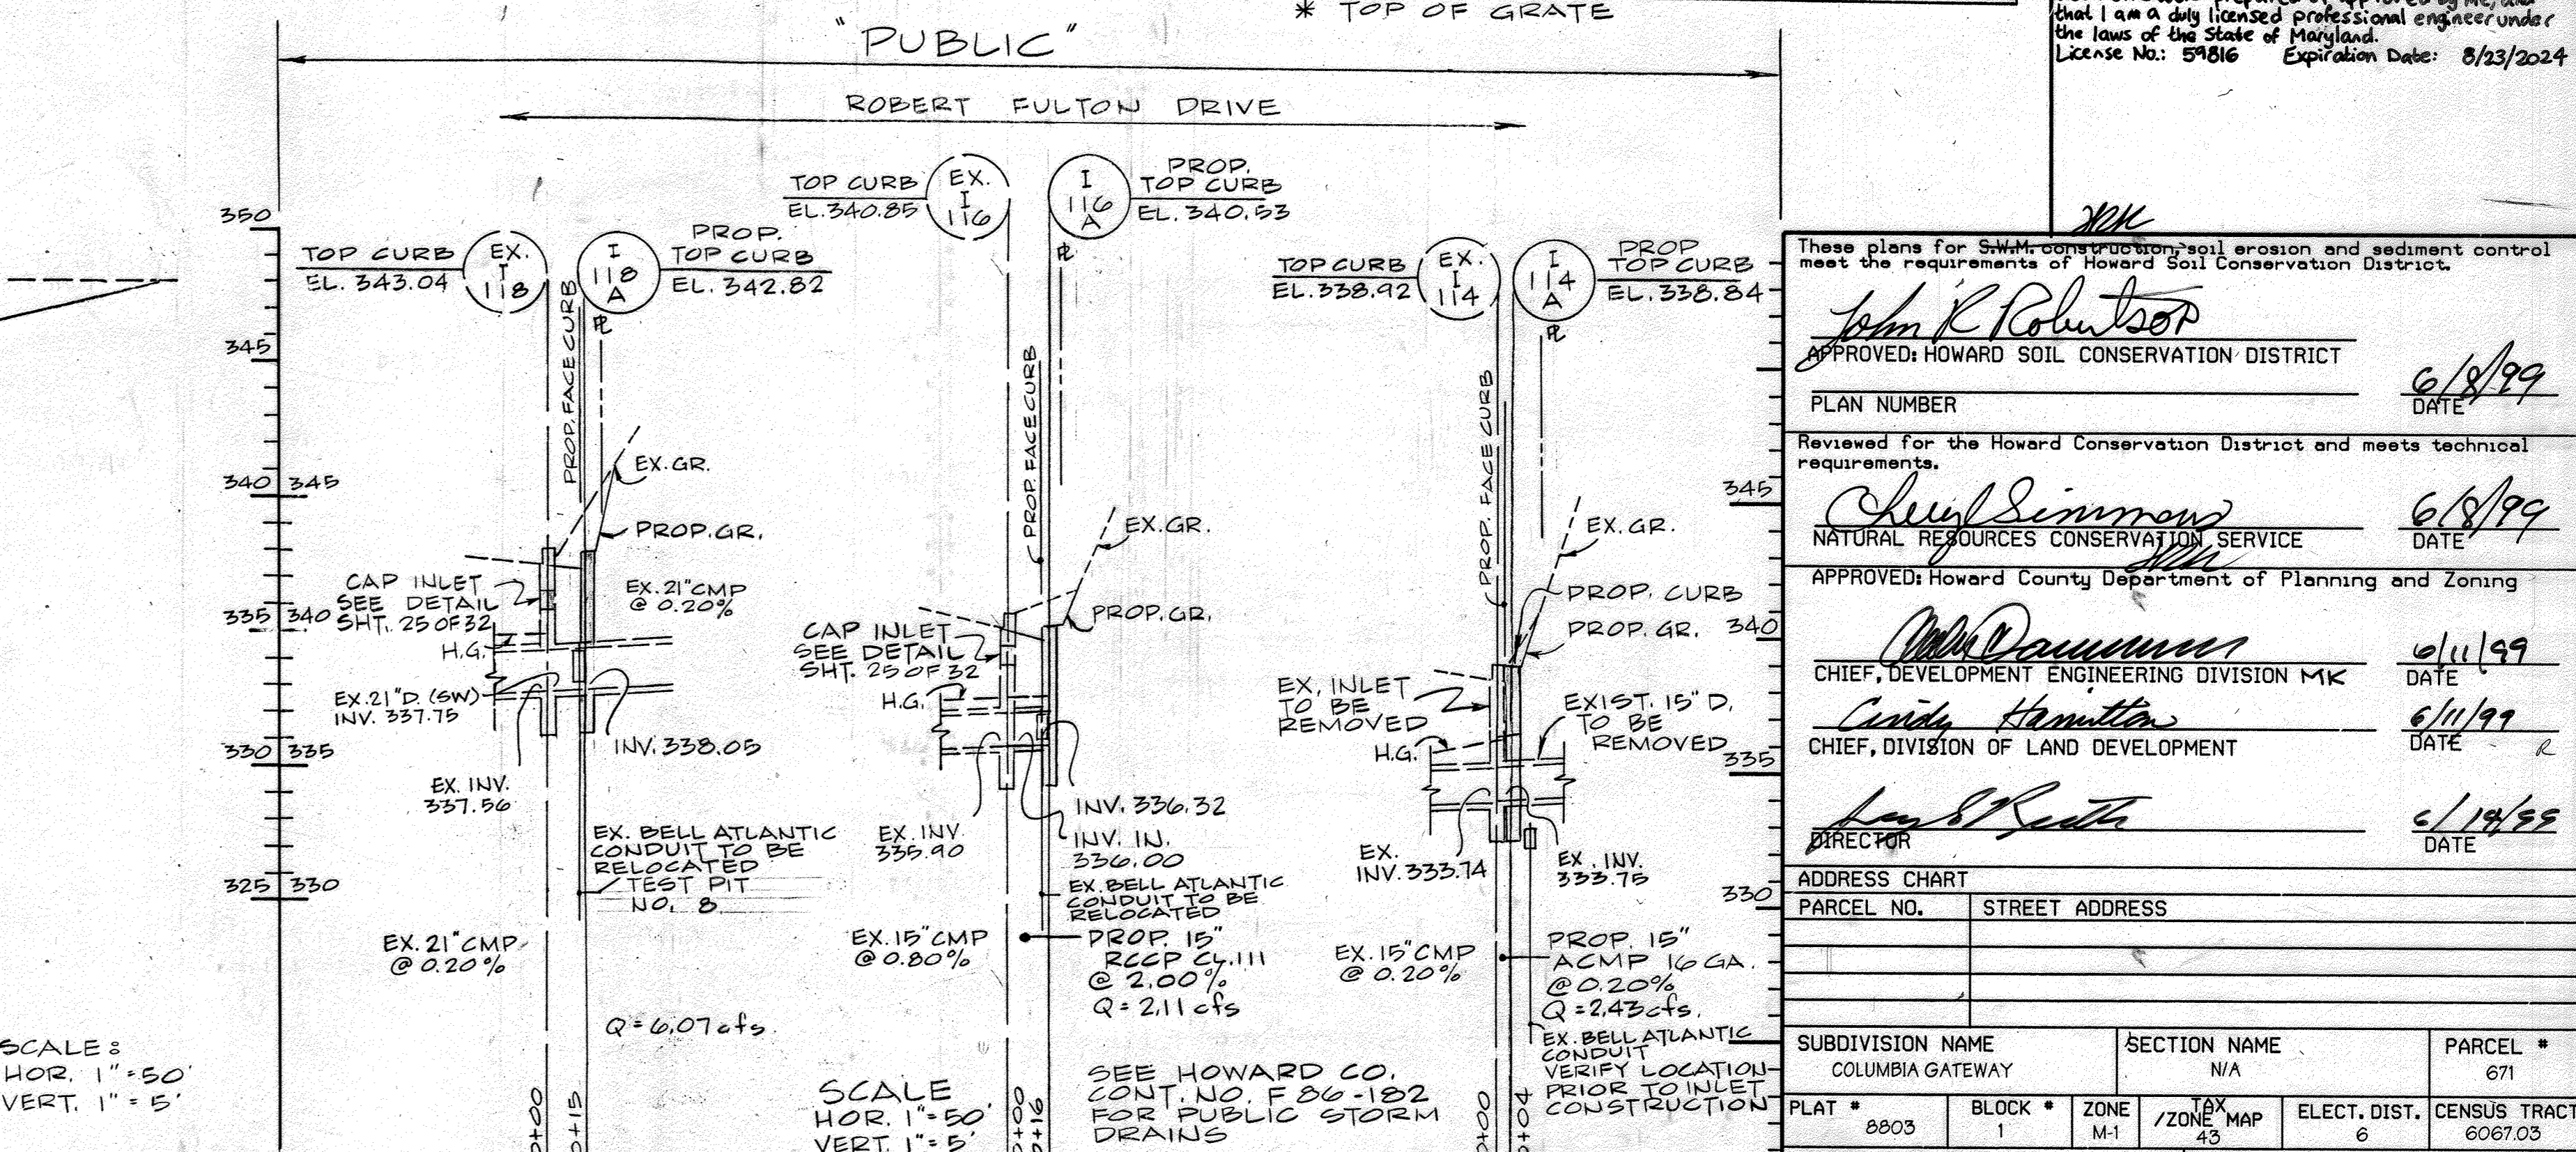 * TOP OF GRATE
"PUBLIC"
ROBERT FULTON DRIVE
that I am a duly licensed professional engineer under
the laws of the State of Maryland.
License No.: 59816 Expiration Date: 8/23/2024
350
345
340 345
335 340
330 335
325 330
TOP CURB
EL. 343.04
EX.
I
118
I
118
A
PROP.
TOP CURB
EL. 342.82
PL
PROP. FACE CURB
EX. GR.
PROP. GR.
CAP INLET
SEE DETAIL
SHT. 25 OF 32
H.G.
EX. 21" CMP
@ 0.20%
EX. 21" D. (SW)
INV. 337.75
INV. 338.05
EX. INV.
337.56
EX. BELL ATLANTIC
CONDUIT TO BE
RELOCATED
TEST PIT
NO. 8
EX. 21" CMP
@ 0.20%
Q = 6.07 cfs.
0+00
0+15
SCALE:
HOR. 1" = 50'
VERT. 1" = 5'
TOP CURB
EL. 340.85
EX.
I
116
I
116
A
PROP.
TOP CURB
EL. 340.53
PL
PROP. FACE CURB
EX. GR.
PROP. GR.
CAP INLET
SEE DETAIL
SHT. 25 OF 32
H.G.
INV. 336.32
INV. IN.
336.00
EX. INV.
335.90
EX. BELL ATLANTIC
CONDUIT TO BE
RELOCATED
EX. 15" CMP
@ 0.80%
PROP. 15"
RCCP CL. III
@ 2.00%
Q = 2.11 cfs
SCALE
HOR. 1" = 50'
VERT. 1" = 5'
0+00
0+16
SEE HOWARD CO.
CONT. NO. F 86-182
FOR PUBLIC STORM
DRAINS
TOP CURB
EL. 338.92
EX.
I
114
I
114
A
PROP
TOP CURB
EL. 338.84
PL
PROP. FACE CURB
EX. GR.
PROP. CURB
PROP. GR.
EX. INLET
TO BE
REMOVED
H.G.
EXIST. 15" D.
TO BE
REMOVED
EX.
INV. 333.74
EX. INV.
333.75
EX. 15" CMP
@ 0.20%
PROP. 15"
ACMP 16 GA.
@ 0.20%
Q = 2.43 cfs.
EX. BELL ATLANTIC
CONDUIT
VERIFY LOCATION
PRIOR TO INLET
CONSTRUCTION
0+00
0+04
345
340
335
330
These plans for S.W.M. construction, soil erosion and sediment control
meet the requirements of Howard Soil Conservation District.
John R Robertson
APPROVED: HOWARD SOIL CONSERVATION DISTRICT
6/8/99
PLAN NUMBER DATE
Reviewed for the Howard Conservation District and meets technical
requirements.
Cheryl Simmons 6/8/99
NATURAL RESOURCES CONSERVATION SERVICE DATE
APPROVED: Howard County Department of Planning and Zoning
6/11/99
CHIEF, DEVELOPMENT ENGINEERING DIVISION MK DATE
Cindy Hamilton 6/11/99
CHIEF, DIVISION OF LAND DEVELOPMENT DATE
R
DIRECTOR DATE
ADDRESS CHART
PARCEL NO. STREET ADDRESS
SUBDIVISION NAME SECTION NAME PARCEL #
COLUMBIA GATEWAY N/A 671
PLAT # BLOCK # ZONE TAX/ZONE MAP ELECT. DIST. CENSUS TRACT
8803 1 M-1 43 6 6067.03